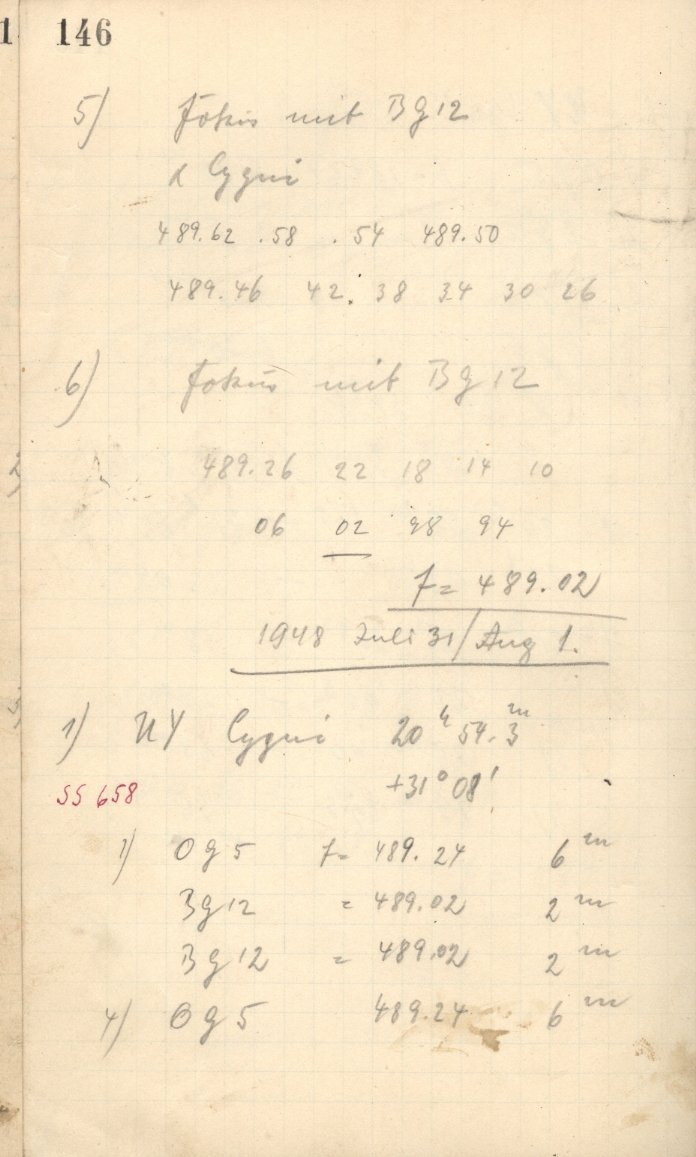 146
5) Fokus mit Bg12
α Cygni
489.62 .58 .54 489.50
489.46 42. 38 34 30 26
6) Fokus mit Bg12
489.26 22 18 14 10
06 02 98 94
f = 489.02
1948 Juli 31/Aug 1.
1) UY Cygni 20h 54.3m
+31° 08'
SS 658
1) Og5 f = 489.24 6m
Bg12 = 489.02 2m
Bg12 = 489.02 2m
4) Og5 489.24 6m